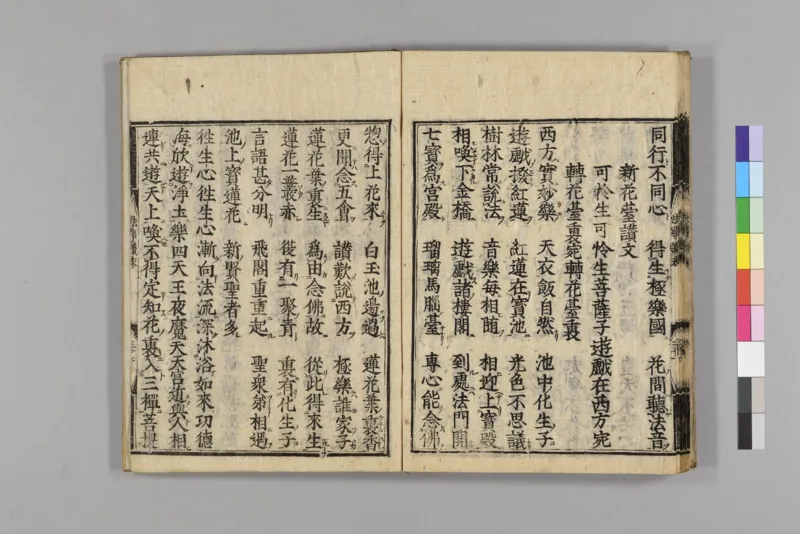 同行不同心 得生極樂國 花間聽法音
新花臺讃文
可怜生可怜生菩薩子遊戲在西方宛
轉花臺裏宛轉花臺裏
西方寳妙樂 天衣飯自然 池中化生子
遊戲撥紅蓮 紅蓮在寳池 光色不思議
樹林常說法 音樂每相随 相迎上寳殿
相喚下金橋 遊戲諸樓閣 到處法門開
七寳爲宮殿 瑠璃馬腦臺 專心能念佛
惣得上花來 白玉池邊過 蓮花葉裏香
更聞念五會 讃歎說西方 極樂誰家子
蓮花葉裏生 爲由念佛故 從此得來生
蓮花一叢赤 復有一聚青 裏有化生子
言語甚分明 飛閣重重起 聖衆弟相遇
池上寳蓮花 新賢聖者多
徃生心徃生心漸向法流深沐浴如來功德
海放遊淨土樂四天王夜魔天天宮遊戲久相
連共遊天上喚不得定知花裏入三禪菩提